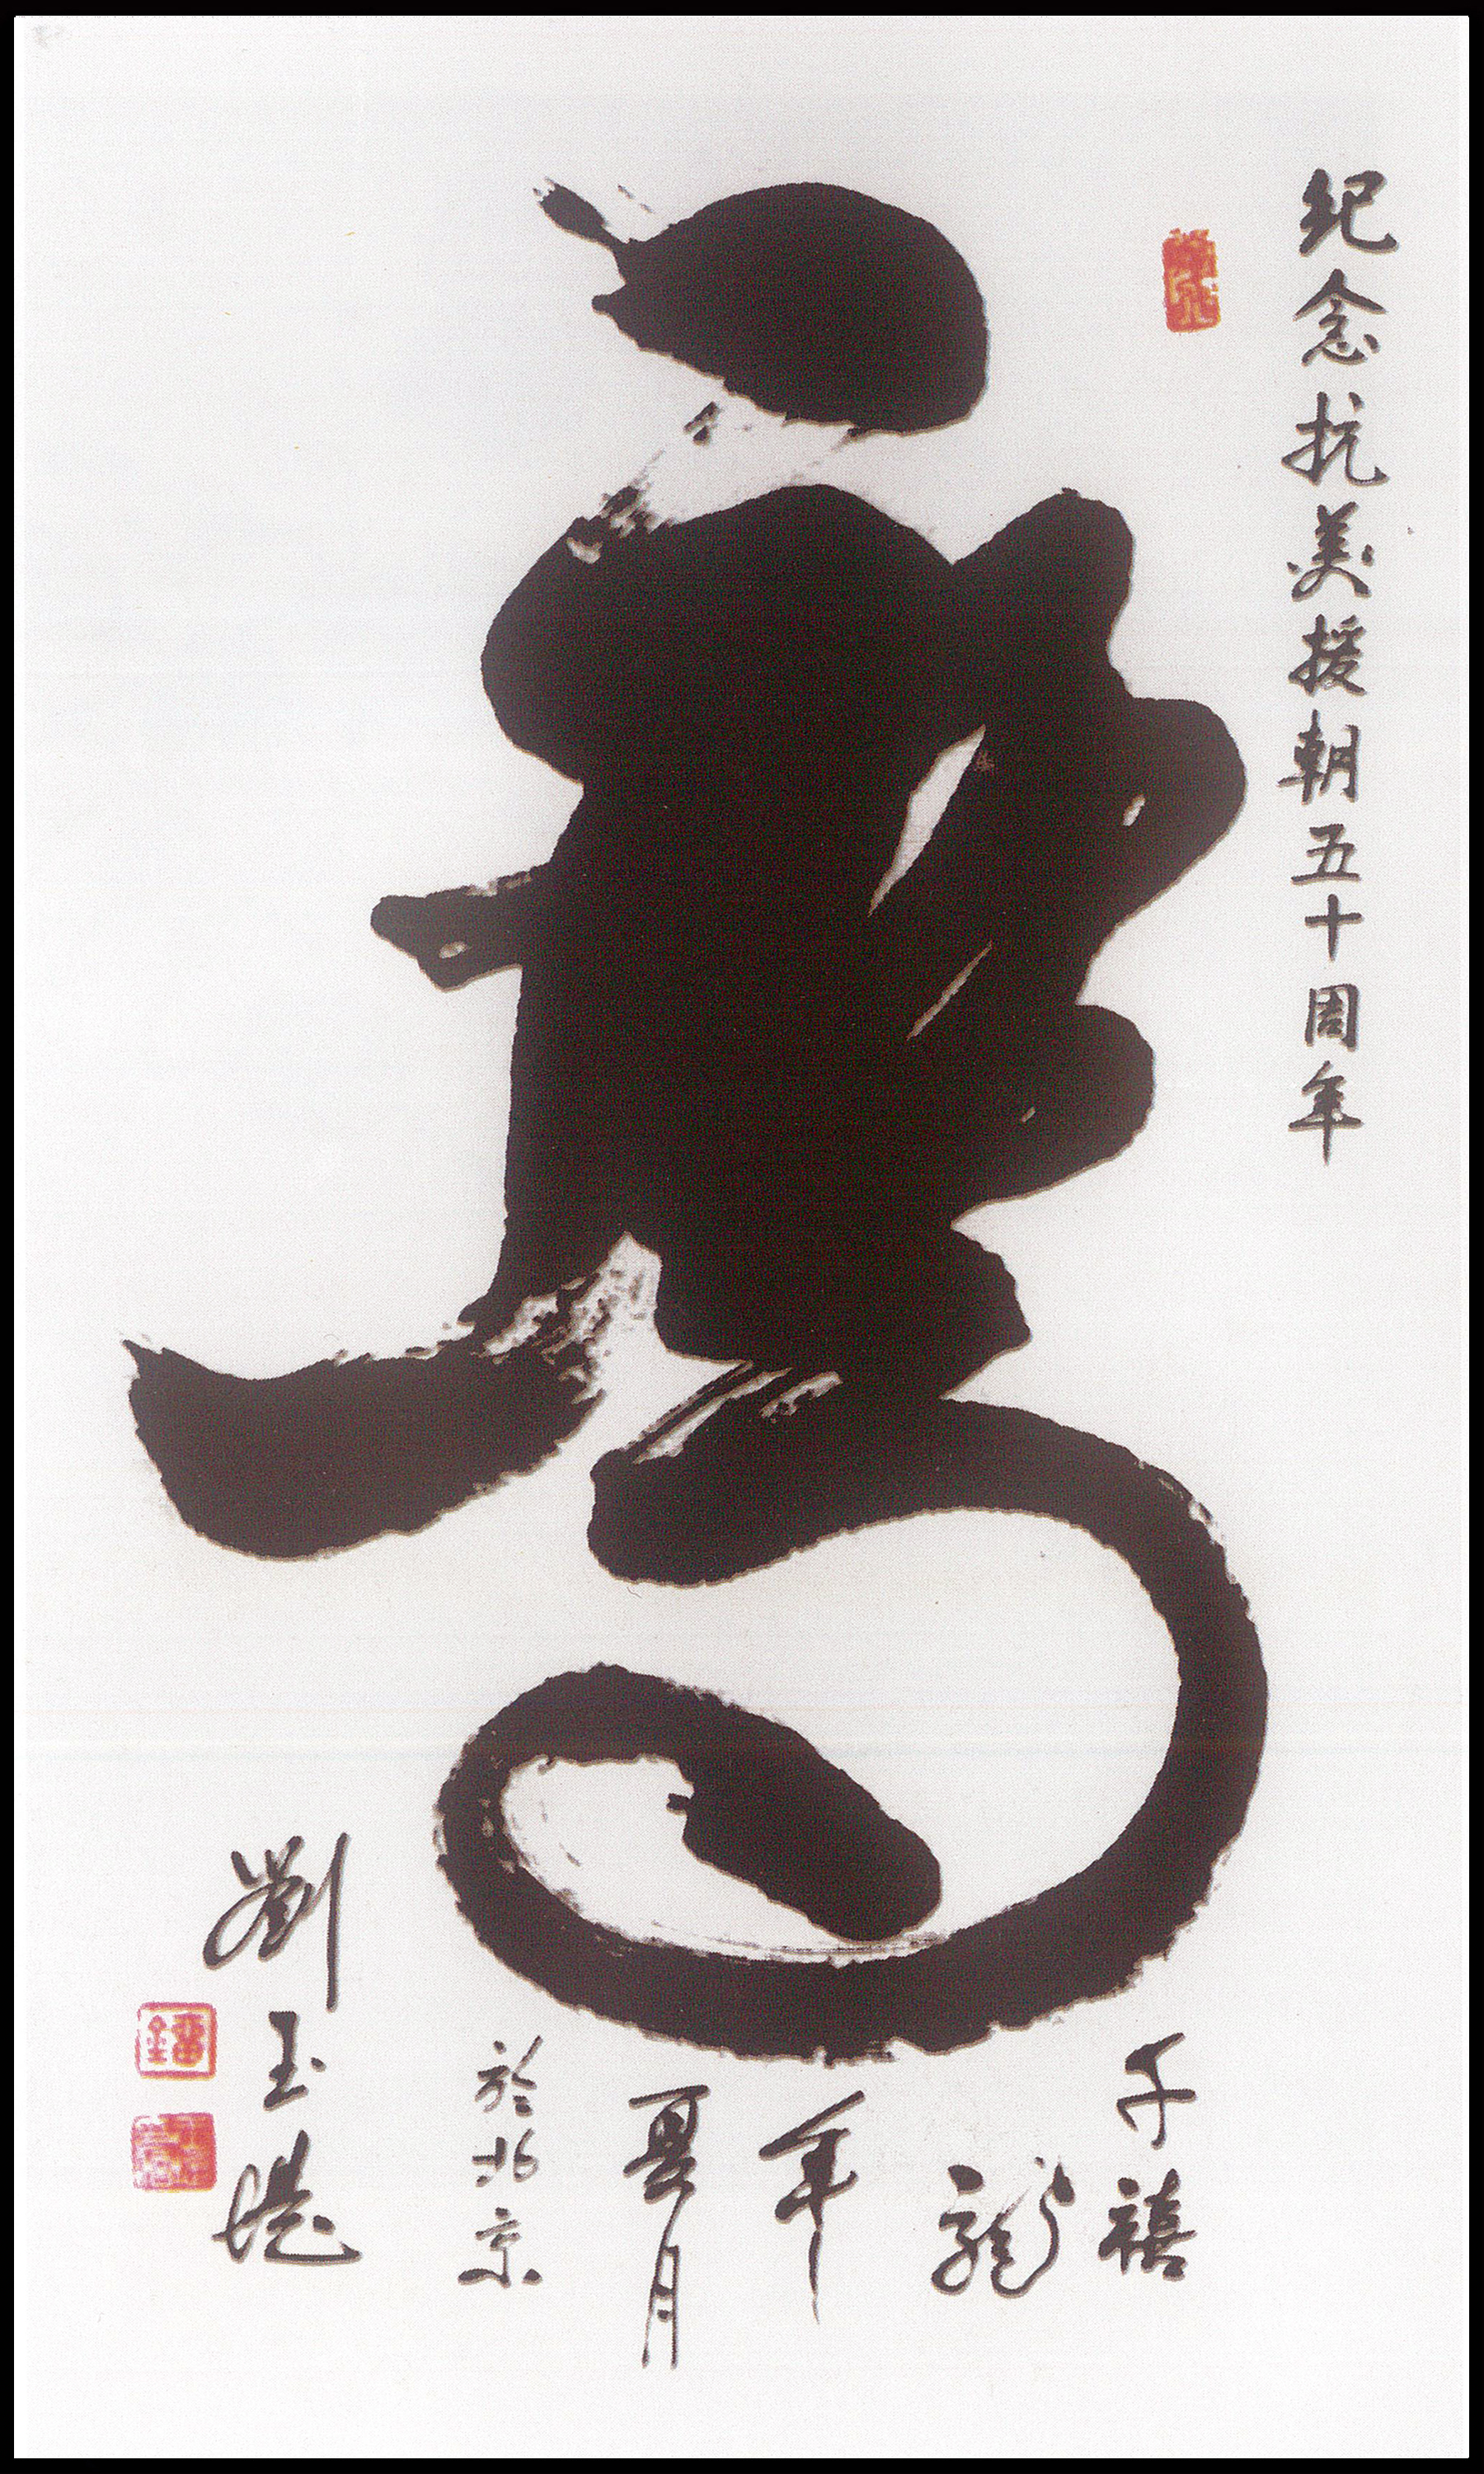 纪念抗美援朝五十周年
千禧
龍
年
夏月
於北京
劉玉堤